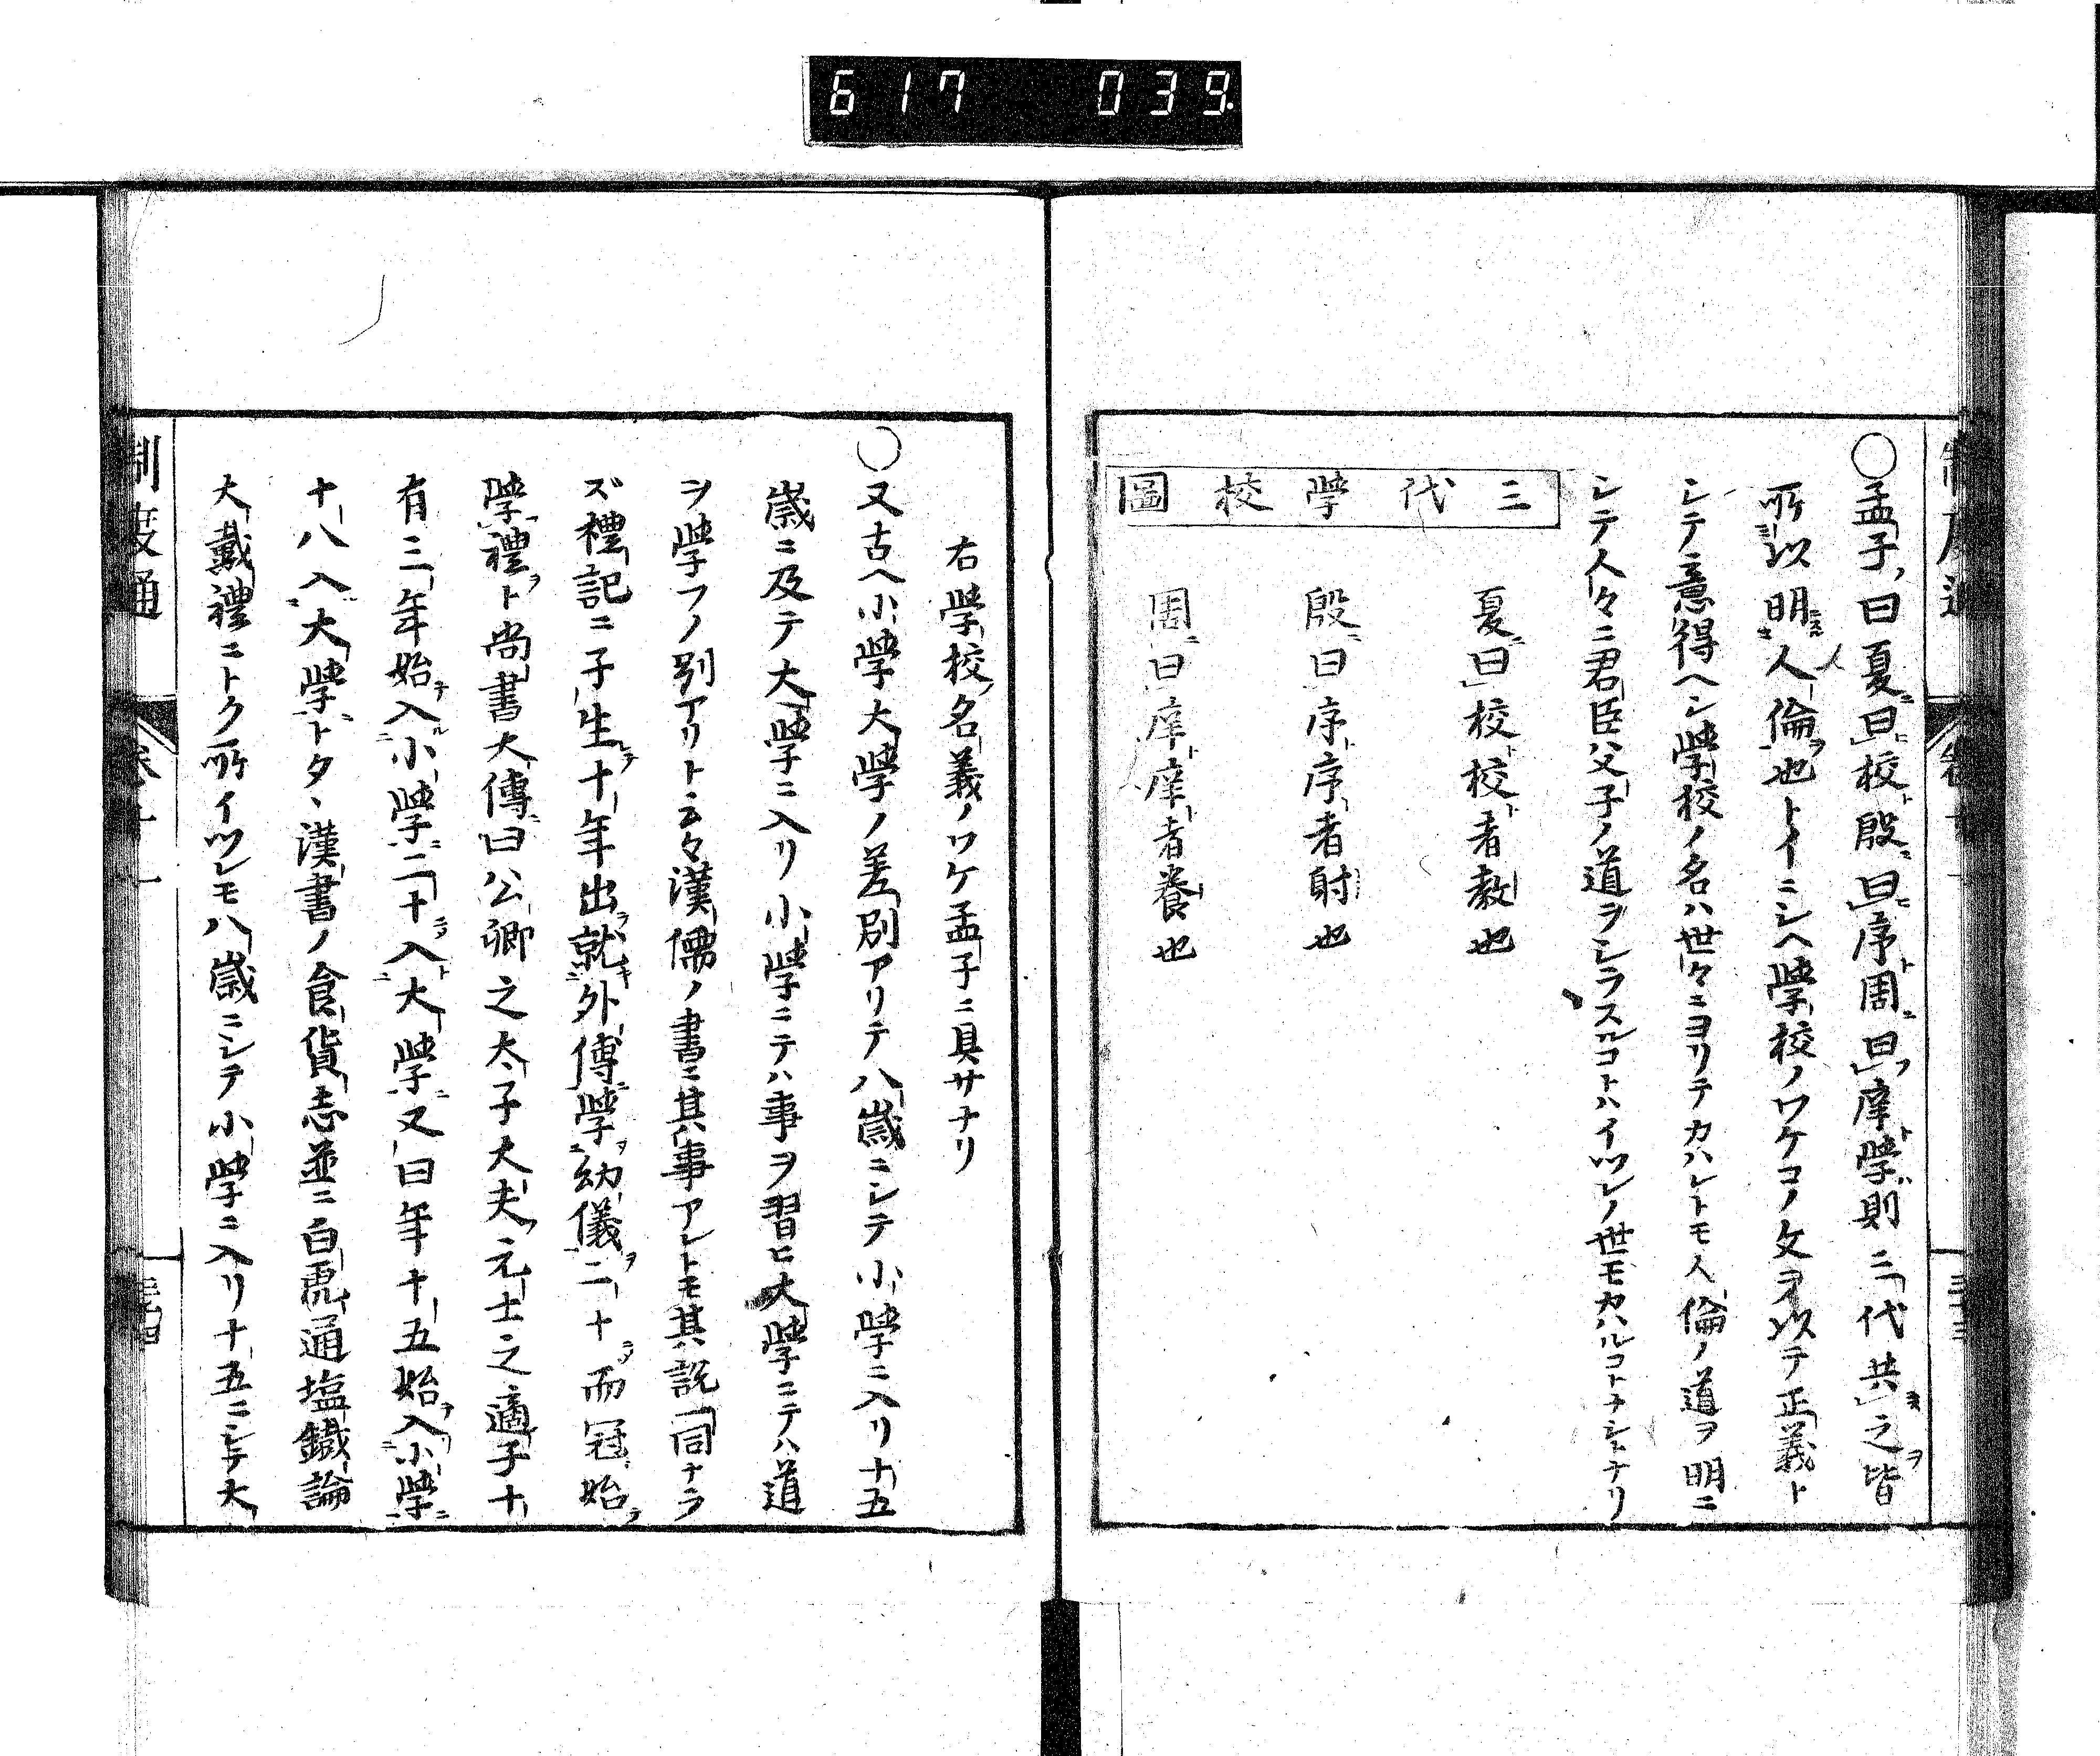 617 039.
〇孟子曰夏曰校殷曰序周曰庠學則三代共之皆
所以明人倫也トイニシヘ學校ノワケコノ文ヲ以テ正義ト
シテ意得ヘシ學校ノ名ハ世々ニヨリテカハレトモ人倫ノ道ヲ明ニ
シテ人々ニ君臣父子ノ道ヲシラスルコトハイツレノ世モカハルコトナシトナリ
三代學校圖
夏曰校校者教也
殷曰序序者射也
周曰庠庠者養也
右學校名義ノワケ孟子ニ具サナリ
〇又古ヘ小學大學ノ差別アリテ八歳ニシテ小學ニ入リ十五
歳ニ及テ大學ニ入リ小學ニテハ事ヲ習ヒ大學ニテハ道
ヲ學フノ別アリト云々漢儒ノ書ニ其事アレトモ其説一同ナラ
ズ禮記ニ子生十年出就外傅學幼儀二十而冠始
學禮ト尚書大傳曰公卿之太子大夫元士之適子十
有三年始入小學二十入大學又曰年十五始入小學
十八入大學トタヽ漢書ノ食貨志並ニ白虎通塩鐵論
大戴禮ニトク所イツレモ八歳ニシテ小學ニ入リ十五ニシテ大
制度通 卷十一